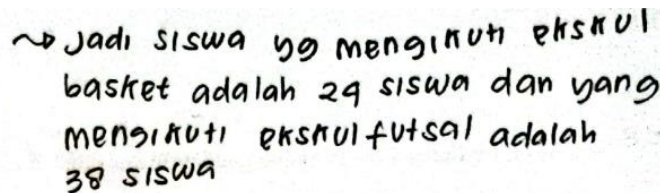 ~> Jadi siswa yg mengikuti ekskul
basket adalah 29 siswa dan yang
mengikuti ekskul futsal adalah
38 siswa